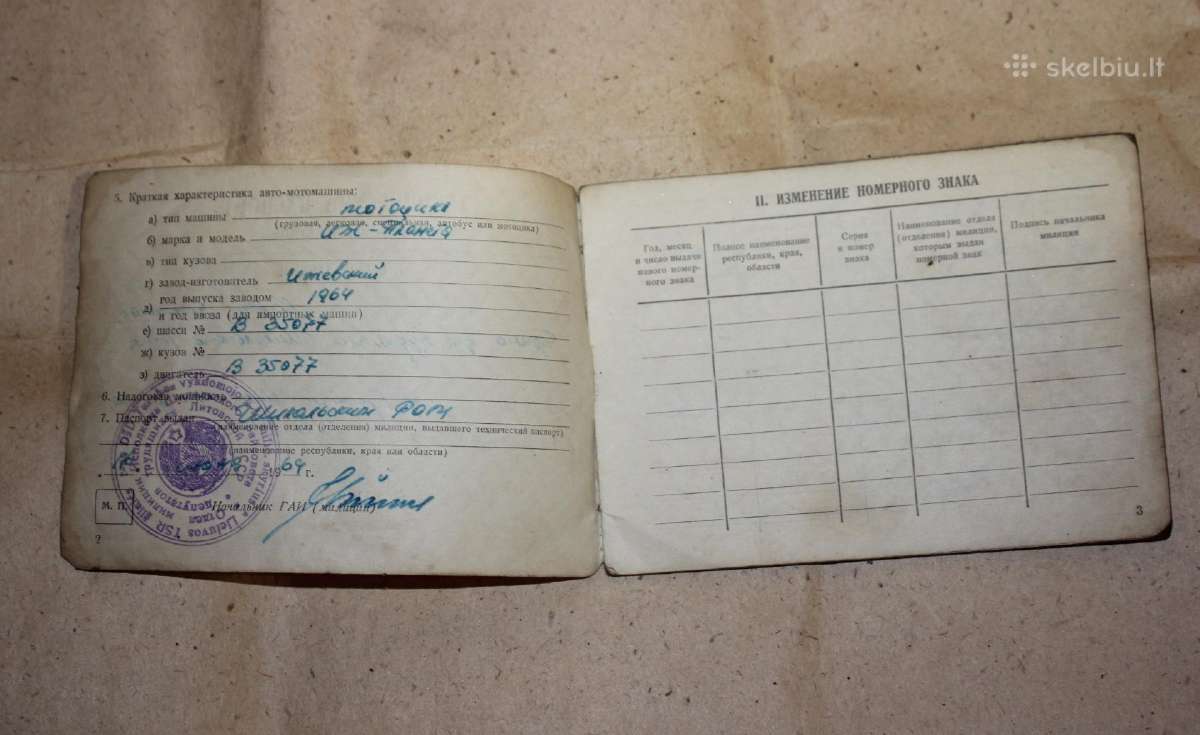 skelbiu.lt
5. Краткая характеристика авто-мотомашины:
а) тип машины мотоцикл
(грузовая, легковая, специальная, автобус или мотоцикл)
б) марка и модель Иж-Планета
в) тип кузова
г) завод-изготовитель Ижевский
д) год выпуска заводом 1964
и год ввоза (для импортных машин)
е) шасси № В 35077
ж) кузов №
з) двигатель В 35077
6. Налоговая мощность
7. Паспорт выдан
(наименование отдела (отделения) милиции, выдавшего технический паспорт)
(наименование республики, края или области)
1964 г.
М. П.
Начальник ГАИ (милиции)
Lietuvos TSR
Литовской ССР
Отдел милиции
2
II. ИЗМЕНЕНИЕ НОМЕРНОГО ЗНАКА
Год, месяц и число выдачи нового номерного знака
Полное наименование республики, края, области
Серия и номер знака
Наименование отдела (отделения) милиции, которым выдан номерной знак
Подпись начальника милиции
3